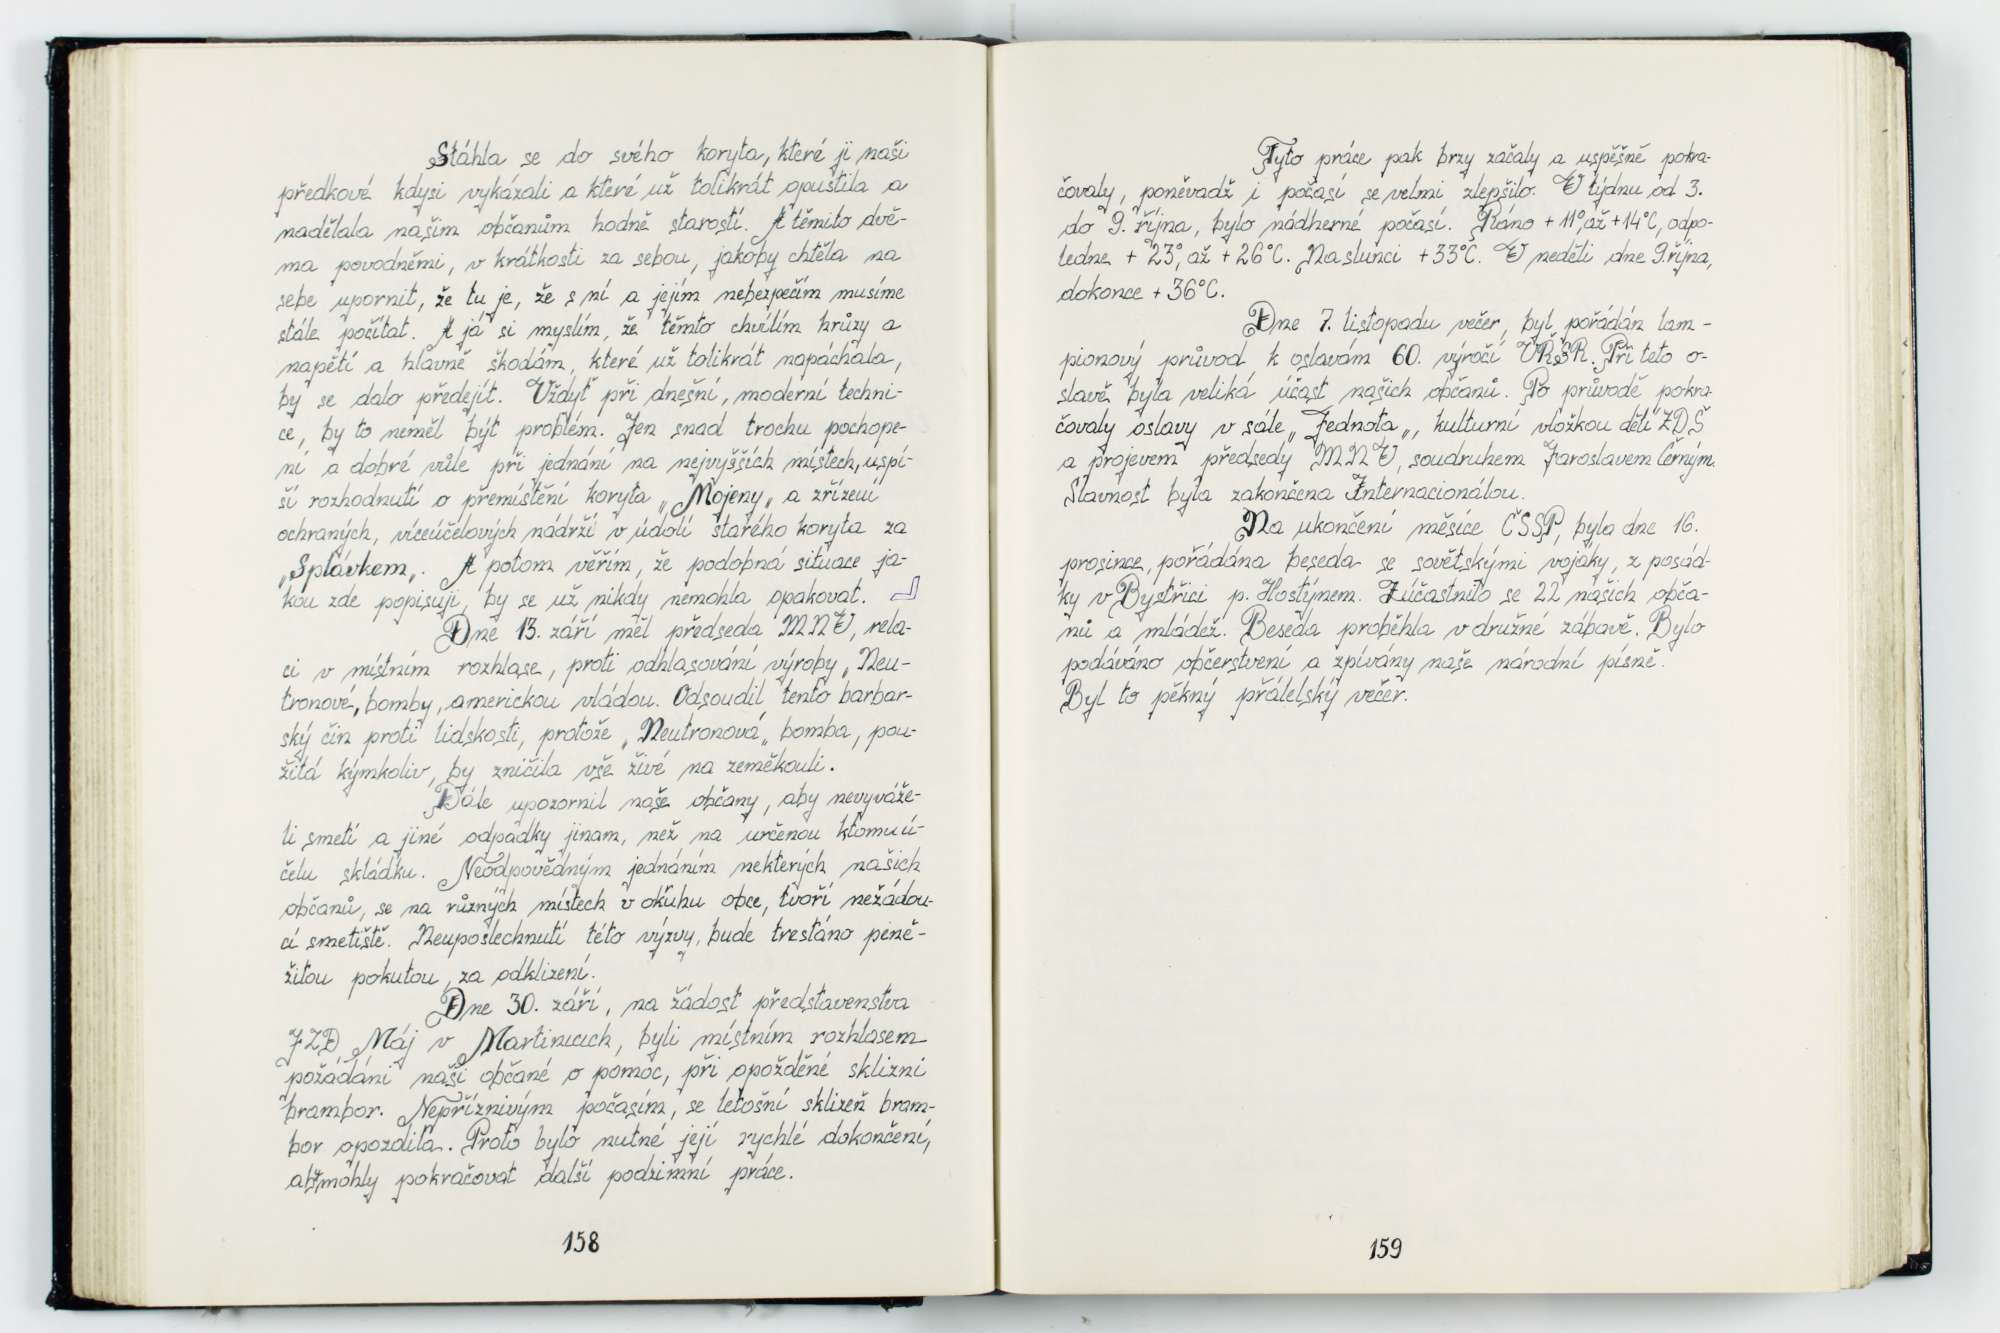 Stáhla se do svého koryta, které ji naši
předkové kdysi vykázali a které už tolikrát opustila a
nadělala našim občanům hodně starostí. A těmito dvě-
ma povodněmi, v krátkosti za sebou, jakoby chtěla na
sebe upornit, že tu je, že s ní a jejím nebezpečím musíme
stále počítat. A já si myslím, že těmto chvílím hrůzy a
napětí a hlavně škodám, které už tolikrát napáchala,
by se dalo předejít. Vždyť při dnešní, moderní techni-
ce, by to neměl být problém. Jen snad trochu pochope-
ní a dobré vůle při jednání na nejvyšších místech, uspí-
ší rozhodnutí o přemístění koryta „Mojeny„ a zřízení
ochraných, víceúčelových nádrží v údolí starého koryta za
„Splávkem„. A potom věřím, že podobná situace ja-
kou zde popisuji, by se už nikdy nemohla opakovat.
Dne 13. září měl předseda MNV, rela-
ci v místním rozhlase, proti odhlasování výroby „Neu-
tronové„ bomby, americkou vládou. Odsoudil tento barbar-
ský čin proti lidskosti, protože „Neutronová„ bomba, pou-
žitá kýmkoliv, by zničila vše živé na zeměkouli.
Dále upozornil naše občany, aby nevyváže-
li smetí a jiné odpadky jinam, než na určenou ktomu ú-
čelu skládku. Neodpovědným jednáním nekterých našich
občanů, se na různých místech v okuhu obce, tvoří nežádou-
cí smetiště. Neuposlechnutí této výzvy, bude trestáno peně-
žitou pokutou, za odklizení.
Dne 30. září, na žádost představenstva
JZD Máj v Martinicích, byli místním rozhlasem
požádáni naši občané o pomoc, při opožděné sklizni
brambor. Nepříznivým počasím, se letošní sklizeň bram-
bor opozdila. Proto bylo nutné její rychlé dokončení,
aby mohly pokračovat další podzimní práce.
158
Tyto práce pak brzy začaly a uspěšně pokra-
čovaly, poněvadž i počasí se velmi zlepšilo. V týdnu od 3.
do 9. října, bylo nádherné počasí. Ráno + 11°, až + 14°C, odpo-
ledne + 23°, až + 26°C. Na slunci + 33°C. V neděli dne 9. října,
dokonce + 36°C.
Dne 7. listopadu večer, byl pořádán lam-
pionový průvod k oslavám 60. výročí VŘSR. Při teto o-
slavě byla veliká účast našich občanů. Po průvodě pokra-
čovaly oslavy v sále „Jednota„, kulturní vložkou dětí ZDŠ
a projevem předsedy MNV, soudruhem Jaroslavem Černým.
Slavnost byla zakončena Internacionálou.
Na ukončení měsíce ČSSP, byla dne 16.
prosince, pořádána beseda se sovětskými vojáky, z posád-
ky v Bystřici p. Hostýnem. Zúčastnilo se 22 našich obča-
nů a mládež. Beseda proběhla v družné zábavě. Bylo
podáváno občerstvení a zpívány naše národní písně.
Byl to pěkný přálelský večer.
159